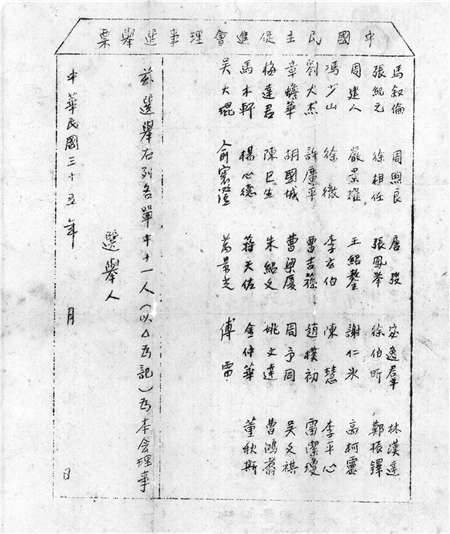 中國民主促進會理事選舉票
馬叙倫 周煦良 唐弢 宓逸羣 林漢達
張紀元 徐相任 張鳳舉 徐伯昕 鄭振鐸
周建人 嚴景耀 王紹鏊 謝仁冰 高柯靈
馮少山 徐徹 李玄伯 陳慧 李平心
劉大杰 許廣平 曹吉 趙樸初 雷潔瓊
章蟾華 胡國城 曹梁廈 周予同 吳文祺
梅達君 陳巳生 朱紹文 姚文達 曹鴻翥
馬木軒 楊心德 蔣天佐 金仲華 董秋斯
吳大琨 俞寰澄 萬景光 傅雷
茲選舉右列名單中十一人(以△為記)為本會理事
選舉人
中華民國三十五年 月 日